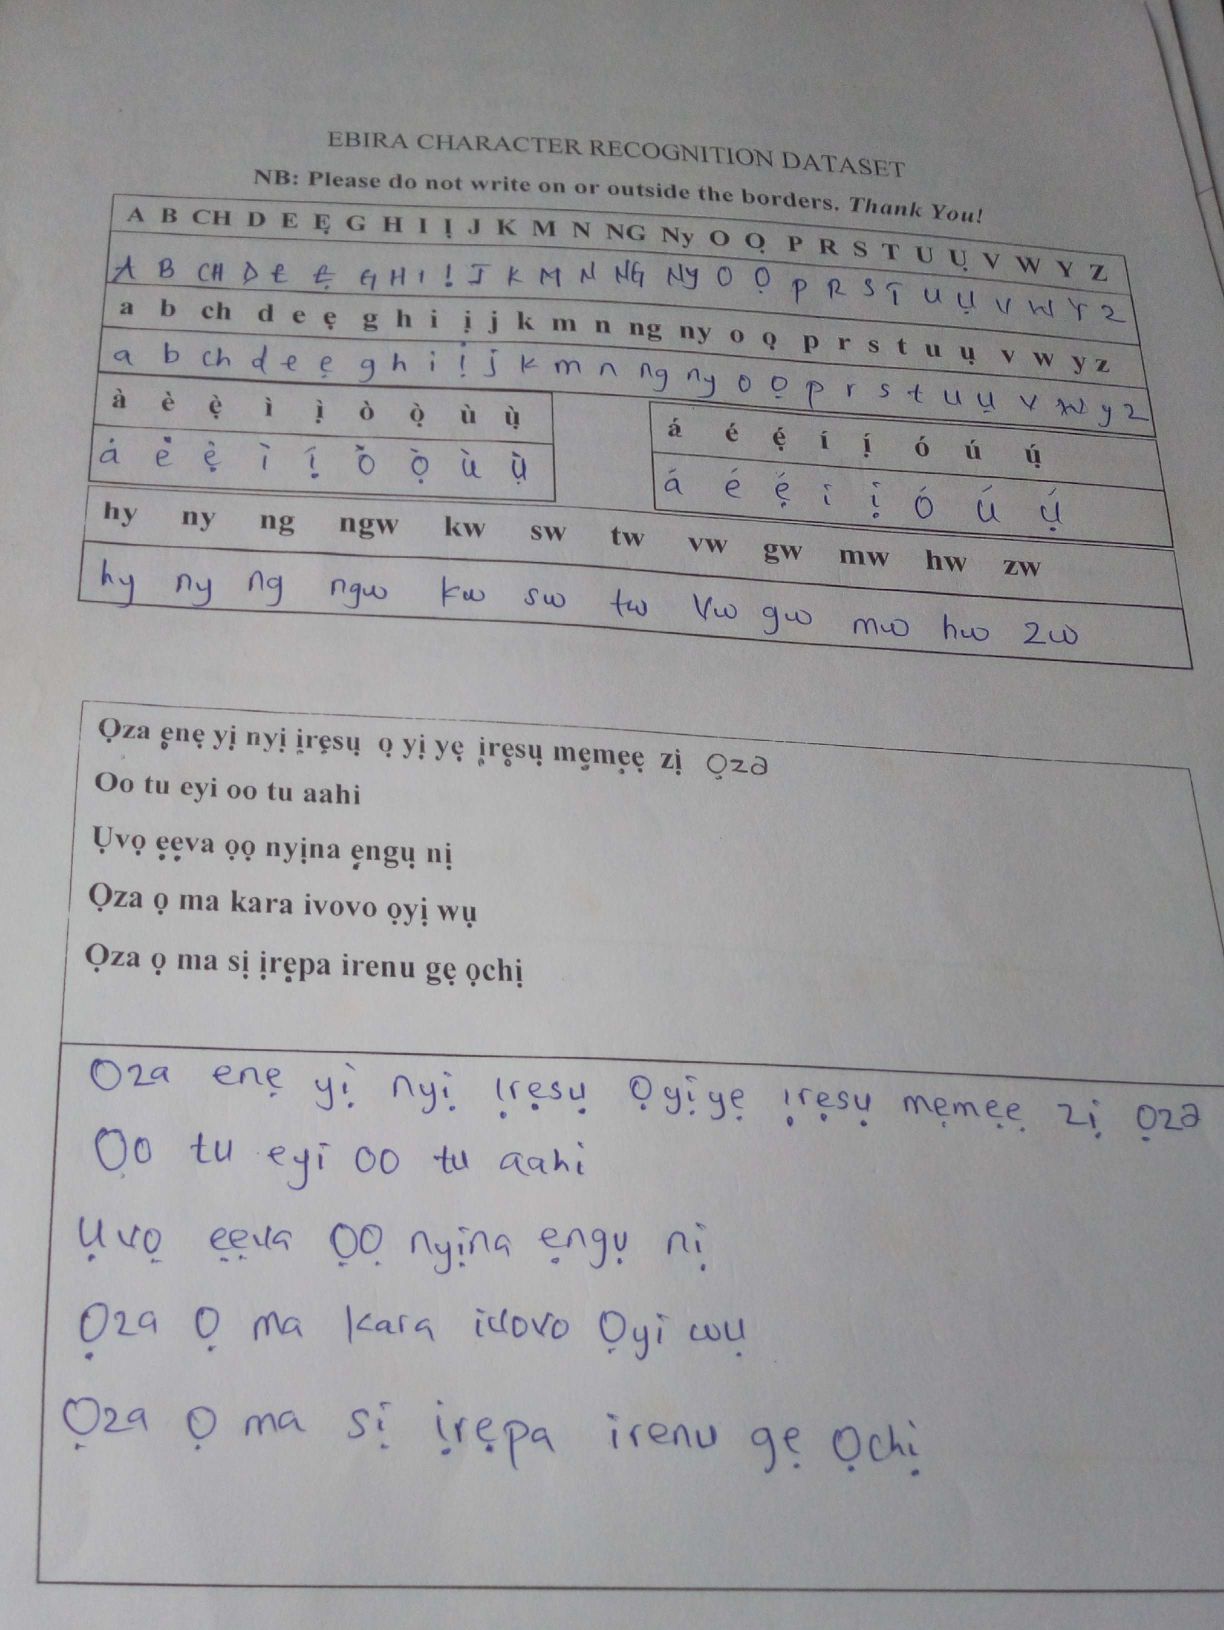 EBIRA CHARACTER RECOGNITION DATASET
NB: Please do not write on or outside the borders. Thank You!
A B CH D E Ẹ G H I Ị J K M N NG Ny O Ọ P R S T U Ụ V W Y Z
A B CH D E Ẹ G H I Ị J K M N NG Ny O Ọ P R S T U Ụ V W Y Z
a b ch d e ẹ g h i ị j k m n ng ny o ọ p r s t u ụ v w y z
a b ch d e ẹ g h i ị j k m n ng ny o ọ p r s t u ụ v w y z
à è ẹ̀ ì ị̀ ò ọ̀ ù ụ̀
á è ẹ̀ ì ị́ ò ọ̀ ù ụ̀
á é ẹ́ í ị́ ó ú ụ́
á é ẹ́ i ị ó ú ụ́
hy ny ng ngw kw sw tw vw gw mw hw zw
hy ny ng ngw kw sw tw Vw gw mw hw zw
Ọza ẹnẹ yị nyị ịrẹsụ ọ yị yẹ ịrẹsụ mẹmẹẹ zị ọza
Oo tu eyi oo tu aahi
Ụvọ ẹẹva ọọ nyịna ẹngụ nị
Ọza ọ ma kara ivovo ọyị wụ
Ọza ọ ma sị ịrẹpa irenu gẹ ọchị
Oza enẹ yị nyị ịrẹsụ Ọyịyẹ ịrẹsụ mẹmẹẹ zị ọza
Ọo tu eyi oo tu aahi
Ụvọ ẹẹva ỌỌ nyịna ẹngụ nị
Ọza Ọ ma kara ivovo Ọyi wụ
Ọza Ọ ma sị ịrẹpa irenu gẹ Ọchị